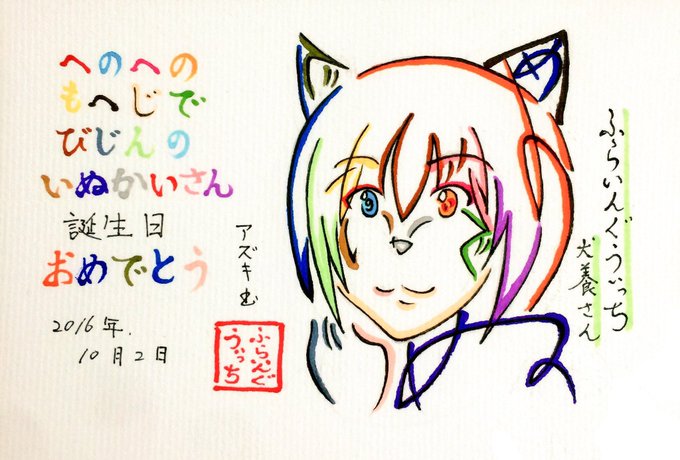 へのへの
もへじで
びじんの
いぬかいさん
誕生日
おめでとう
2016年.
10月2日
アズキ
ふらいんぐ
うぃっち
ふらいんぐうぃっち
犬養さん